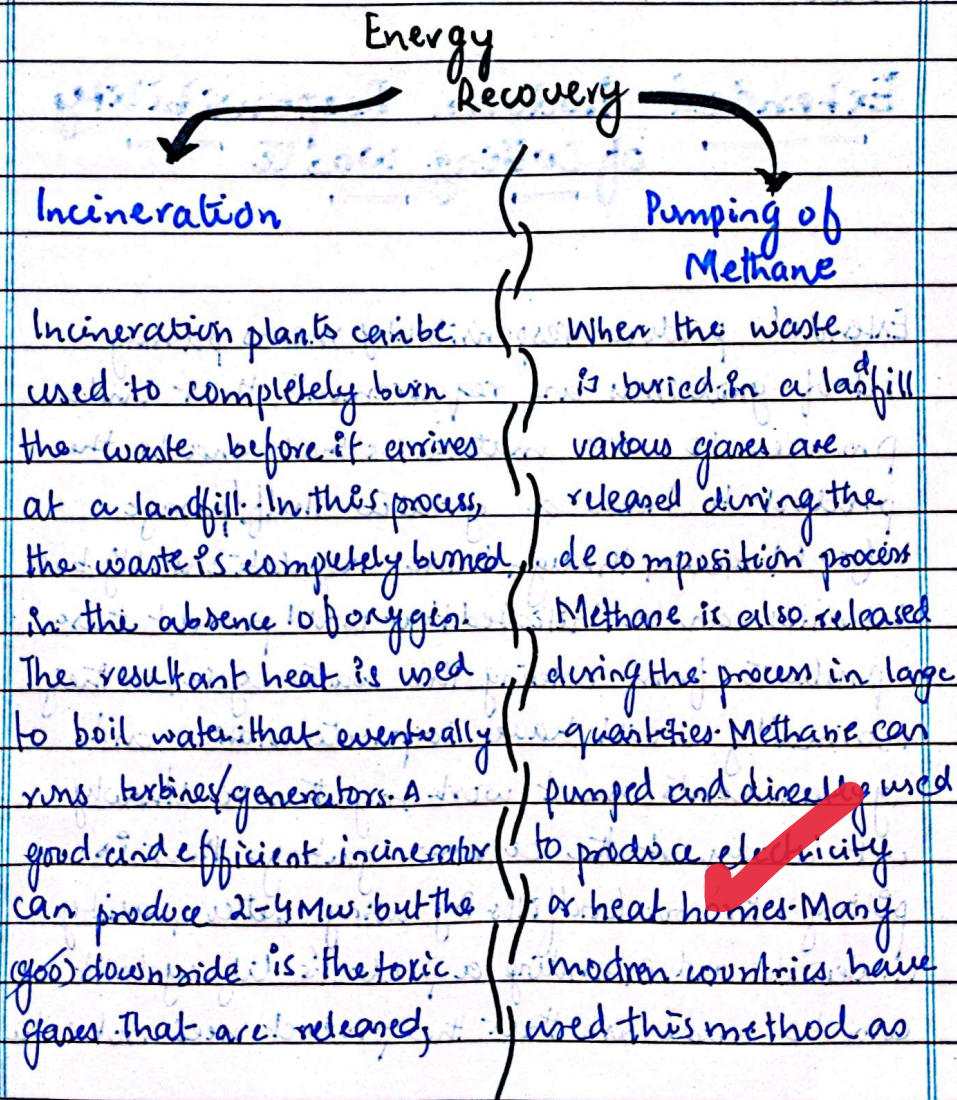 Energy
Recovery
Incineration
Incineration plants can be
used to completely burn
the waste before it arrives
at a landfill. In this process,
the waste is completely burned
in the absence of oxygen.
The resultant heat is used
to boil water that eventually
runs turbines/generators. A
good and efficient incinerator
can produce 2-4 Mw but the
(goo) down side is the toxic
gases that are released,
Pumping of
Methane
When the waste
is buried in a landfill
various gases are
released during the
decomposition process
Methane is also released
during the process in large
quantities. Methane can
pumped and directly used
to produce electricity
or heat homes. Many
modren countries have
used this method as